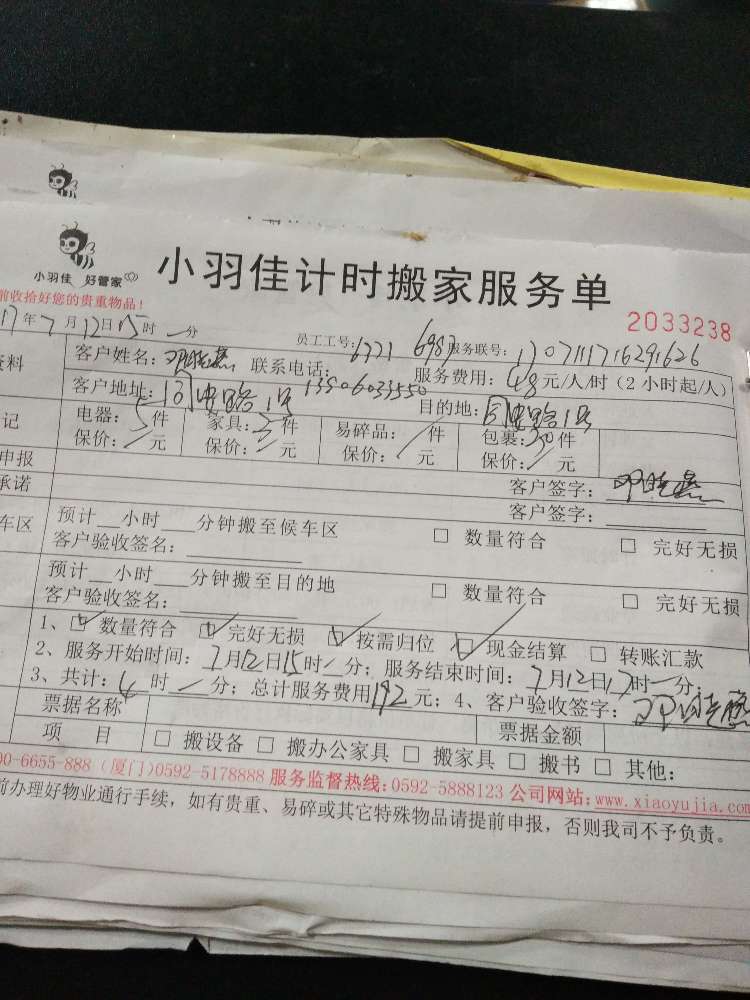 小羽佳 好管家
小羽佳计时搬家服务单
前收拾好您的贵重物品!
2033238
17年7月12日15时一分 员工工号: 6721 6987 服务联号:
资料 客户姓名: 联系电话: 13906033550 服务费用: 48元/人/时(2小时起/人)
客户地址: 路1号 目的地: 路1号
记 电器: 5件 家具: 3件 易碎品: /件 包裹: 30件
保价: /元 保价: /元 保价: /元 保价: /元
申报 客户签字:
承诺 客户签字:
车区 预计__小时___分钟搬至候车区 □ 数量符合 □ 完好无损
客户验收签名:
预计__小时___分钟搬至目的地 □ 数量符合 □ 完好无损
客户验收签名:
1、☑ 数量符合 ☑ 完好无损 ☑ 按需归位 ☑ 现金结算 □ 转账汇款
2、服务开始时间: 7月12日15时一分; 服务结束时间: 7月12日17时一分;
3、共计: 4时一分; 总计服务费用192元; 4、客户验收签字:
票据名称 票据金额
项 目 □ 搬设备 □ 搬办公家具 □ 搬家具 □ 搬书 □ 其他:
00-6655-888 (厦门)0592-5178888 服务监督热线:0592-5888123 公司网站:www.xiaoyujia.com
前办理好物业通行手续,如有贵重、易碎或其它特殊物品请提前申报,否则我司不予负责。